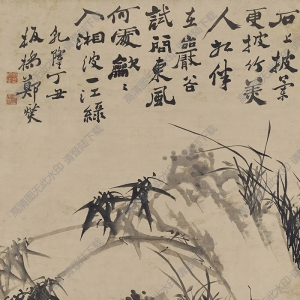 石上披蘭
更披竹美
人相伴
在巖谷
試問東風
何處龡〻
入湘波一江綠
乾隆丁丑
板橋鄭燮